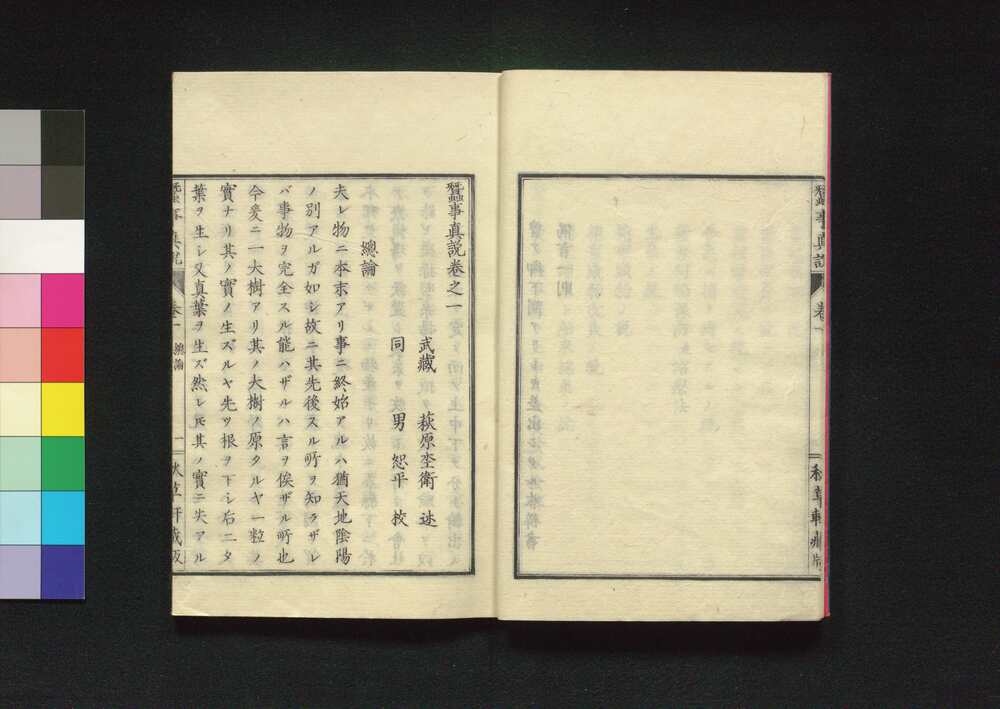 蠶事真説
卷一
蠶事真説卷之一
武藏　萩原杢衛　述
同　男　恕平　挍
總論
夫レ物ニ本末アリ事ニ終始アルハ猶天地陰陽
ノ別アルガ如シ故ニ其先後スル所ヲ知ラザレ
バ事物ヲ完全スル能ハザルハ言ヲ俟ザル所也
今爰ニ一大樹アリ其ノ大樹ノ原タルヤ一粒ノ
實ナリ其ノ實ノ生ズルヤ先ツ根ヲ下シ右ニタ
葉ヲ生シ又真葉ヲ生ズ然レ𪜈其ノ實ニ失アル
卷一
總論
一